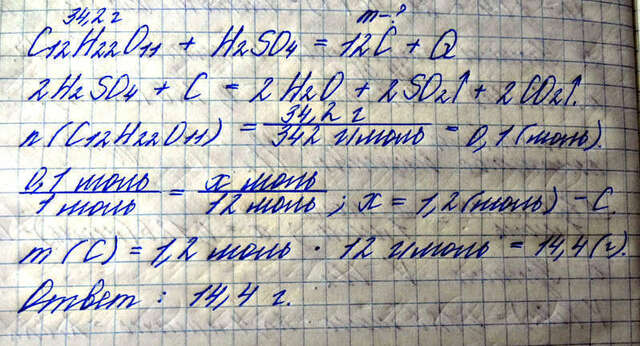 34,2 г m-?
C12H22O11 + H2SO4 = 12C + Q
2H2SO4 + C = 2H2O + 2SO2↑ + 2CO2↑.
n(C12H22O11) = 34,2 г / 342 г/моль = 0,1 (моль).
0,1 моль / 1 моль = x моль / 12 моль ; x = 1,2 (моль) - C.
m(C) = 1,2 моль · 12 г/моль = 14,4 (г).
Ответ: 14,4 г.